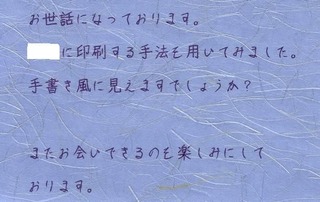 お世話になっております。
に印刷する手法を用いてみました。
手書き風に見えますでしょうか?
またお会いできるのを楽しみにして
おります。